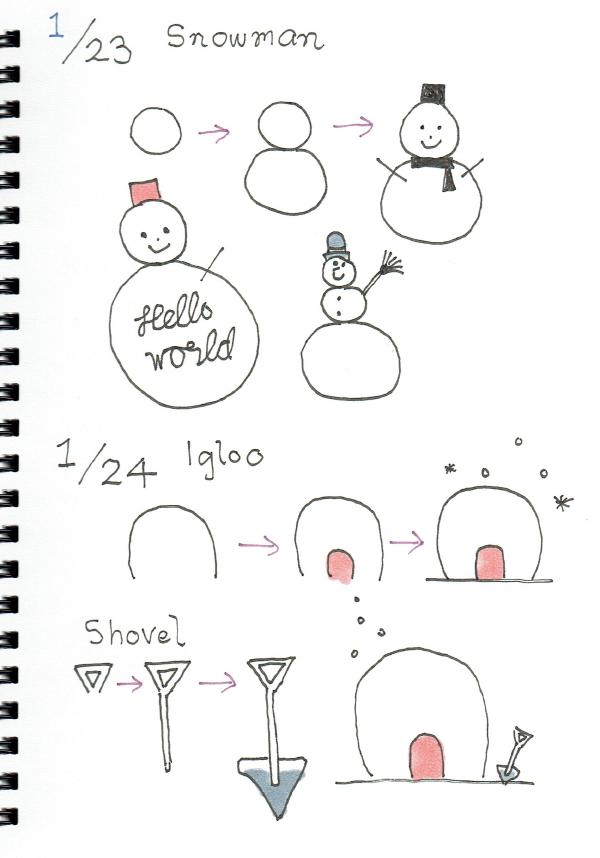 1/23 Snowman
Hello
world
1/24 Igloo
Shovel